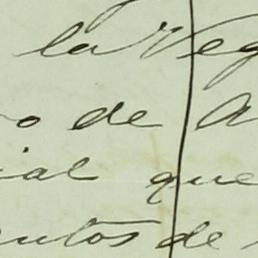 la Veg
o de A
ial que
entos de